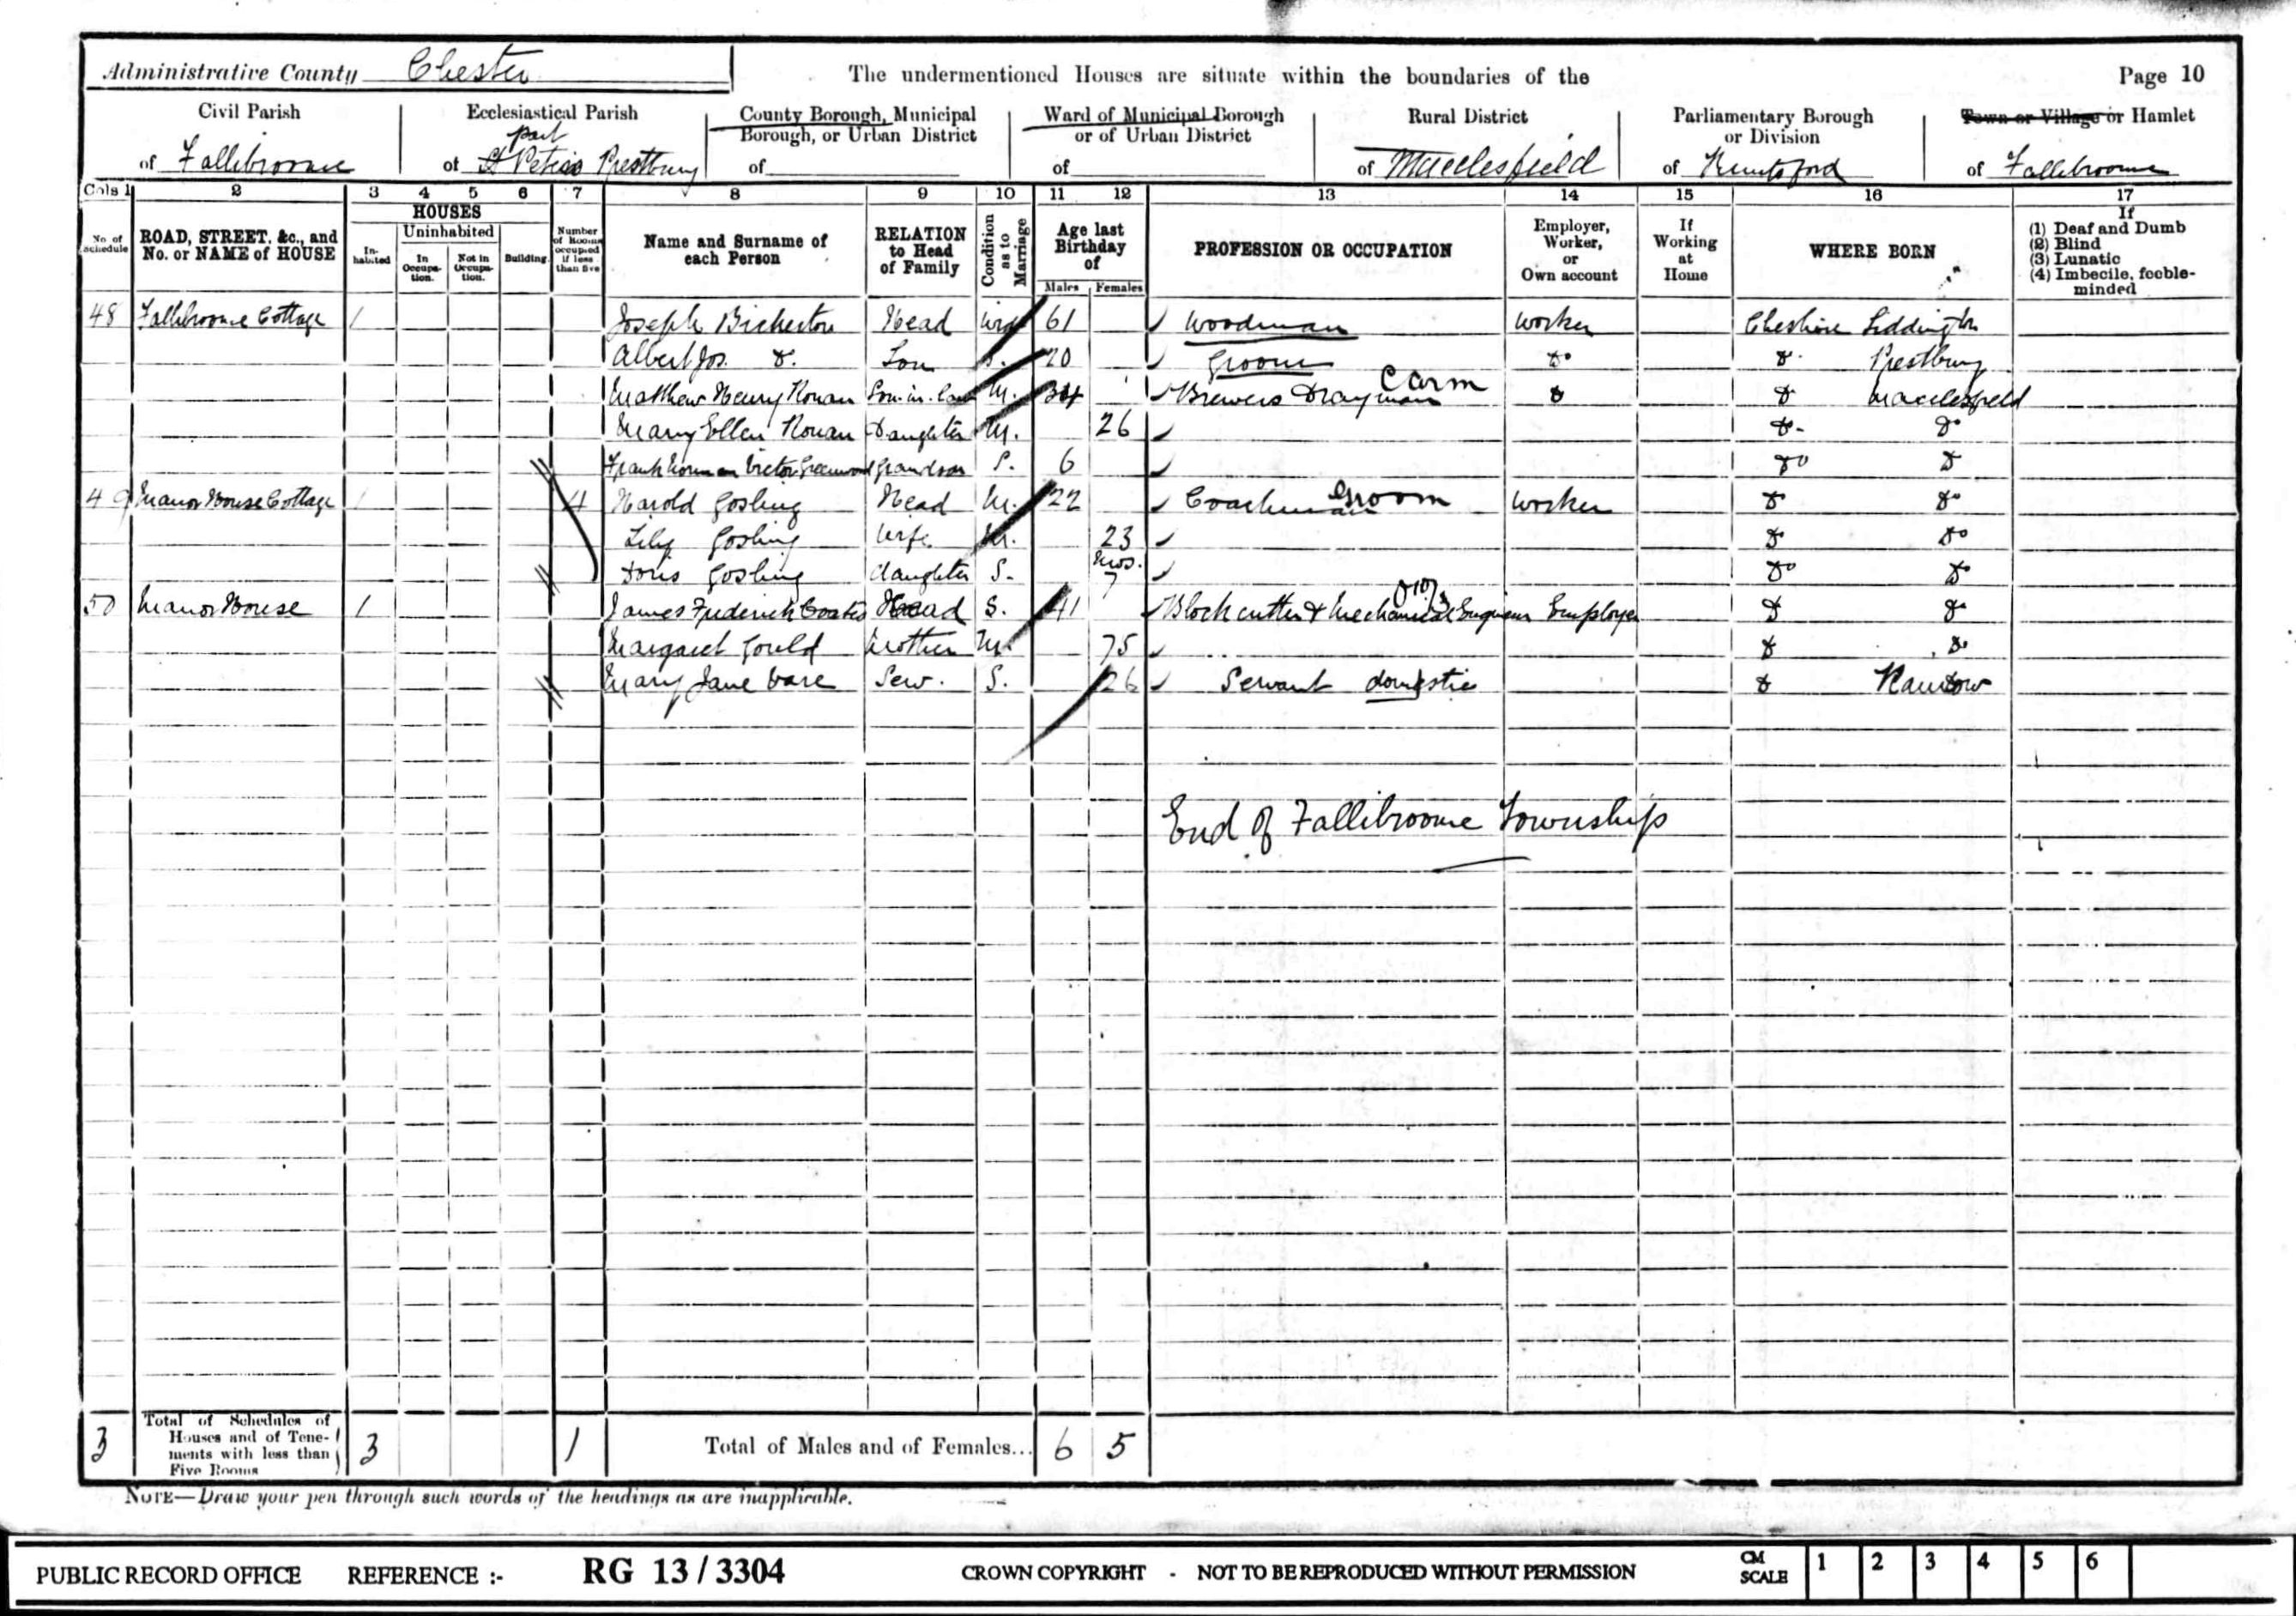 Administrative County Chester
The undermentioned Houses are situate within the boundaries of the
Page 10
Civil Parish
of Fallibroome
Ecclesiastical Parish
part
of St Peters Prestbury
County Borough, Municipal
Borough, or Urban District
of
Ward of Municipal Borough
or of Urban District
of
Rural District
of Macclesfield
Parliamentary Borough
or Division
of Knutsford
Town or Village or Hamlet
of Fallibroome
Cols 1 2 3 4 5 6 7 8 9 10 11 12 13 14 15 16 17
No. of Schedule
ROAD, STREET, &c., and No. or NAME of HOUSE
HOUSES
In-habited
Uninhabited
In Occupa-tion.
Not in Occupa-tion.
Building
Number of Rooms occupied if less than five
Name and Surname of each Person
RELATION to Head of Family
Condition as to Marriage
Age last Birthday of
Males Females
PROFESSION OR OCCUPATION
Employer, Worker, or Own account
If Working at Home
WHERE BORN
If
(1) Deaf and Dumb
(2) Blind
(3) Lunatic
(4) Imbecile, feeble-minded
48 Fallibroome Cottage 1 Joseph Bickerton Head Wid 61 Woodman Worker Cheshire Siddington
Albert Jos. Do. Son S. 20 Groom Do Do Prestbury
Matthew Henry Ronan Son-in-law M. 34 Brewers Drayman Carm Do Do Macclesfield
Mary Ellen Ronan Daughter M. 26 Do Do
Frank Norman Victor Greenwood Grandson S. 6 Do Do
49 Manor House Cottage 1 4 Harold Gosling Head M. 22 Coachman Groom Worker Do Do
Lily Gosling Wife M. 23 Do Do
Doris Gosling daughter S. 7 mos. Do Do
50 Manor House 1 James Frederick Coates Head S. 41 Block cutter & Mechanical Engineer Employer Do Do
Margaret Gould Mother M. 75 Do Do
Mary Jane Vare Serv. S. 26 Servant domestic Do
End of Fallibroome Township
3 Total of Schedules of Houses and of Tene-ments with less than Five Rooms 3 1 Total of Males and of Females... 6 5
NOTE—Draw your pen through such words of the headings as are inapplicable.
PUBLIC RECORD OFFICE REFERENCE :- RG 13/3304 CROWN COPYRIGHT - NOT TO BE REPRODUCED WITHOUT PERMISSION CM SCALE 1 2 3 4 5 6